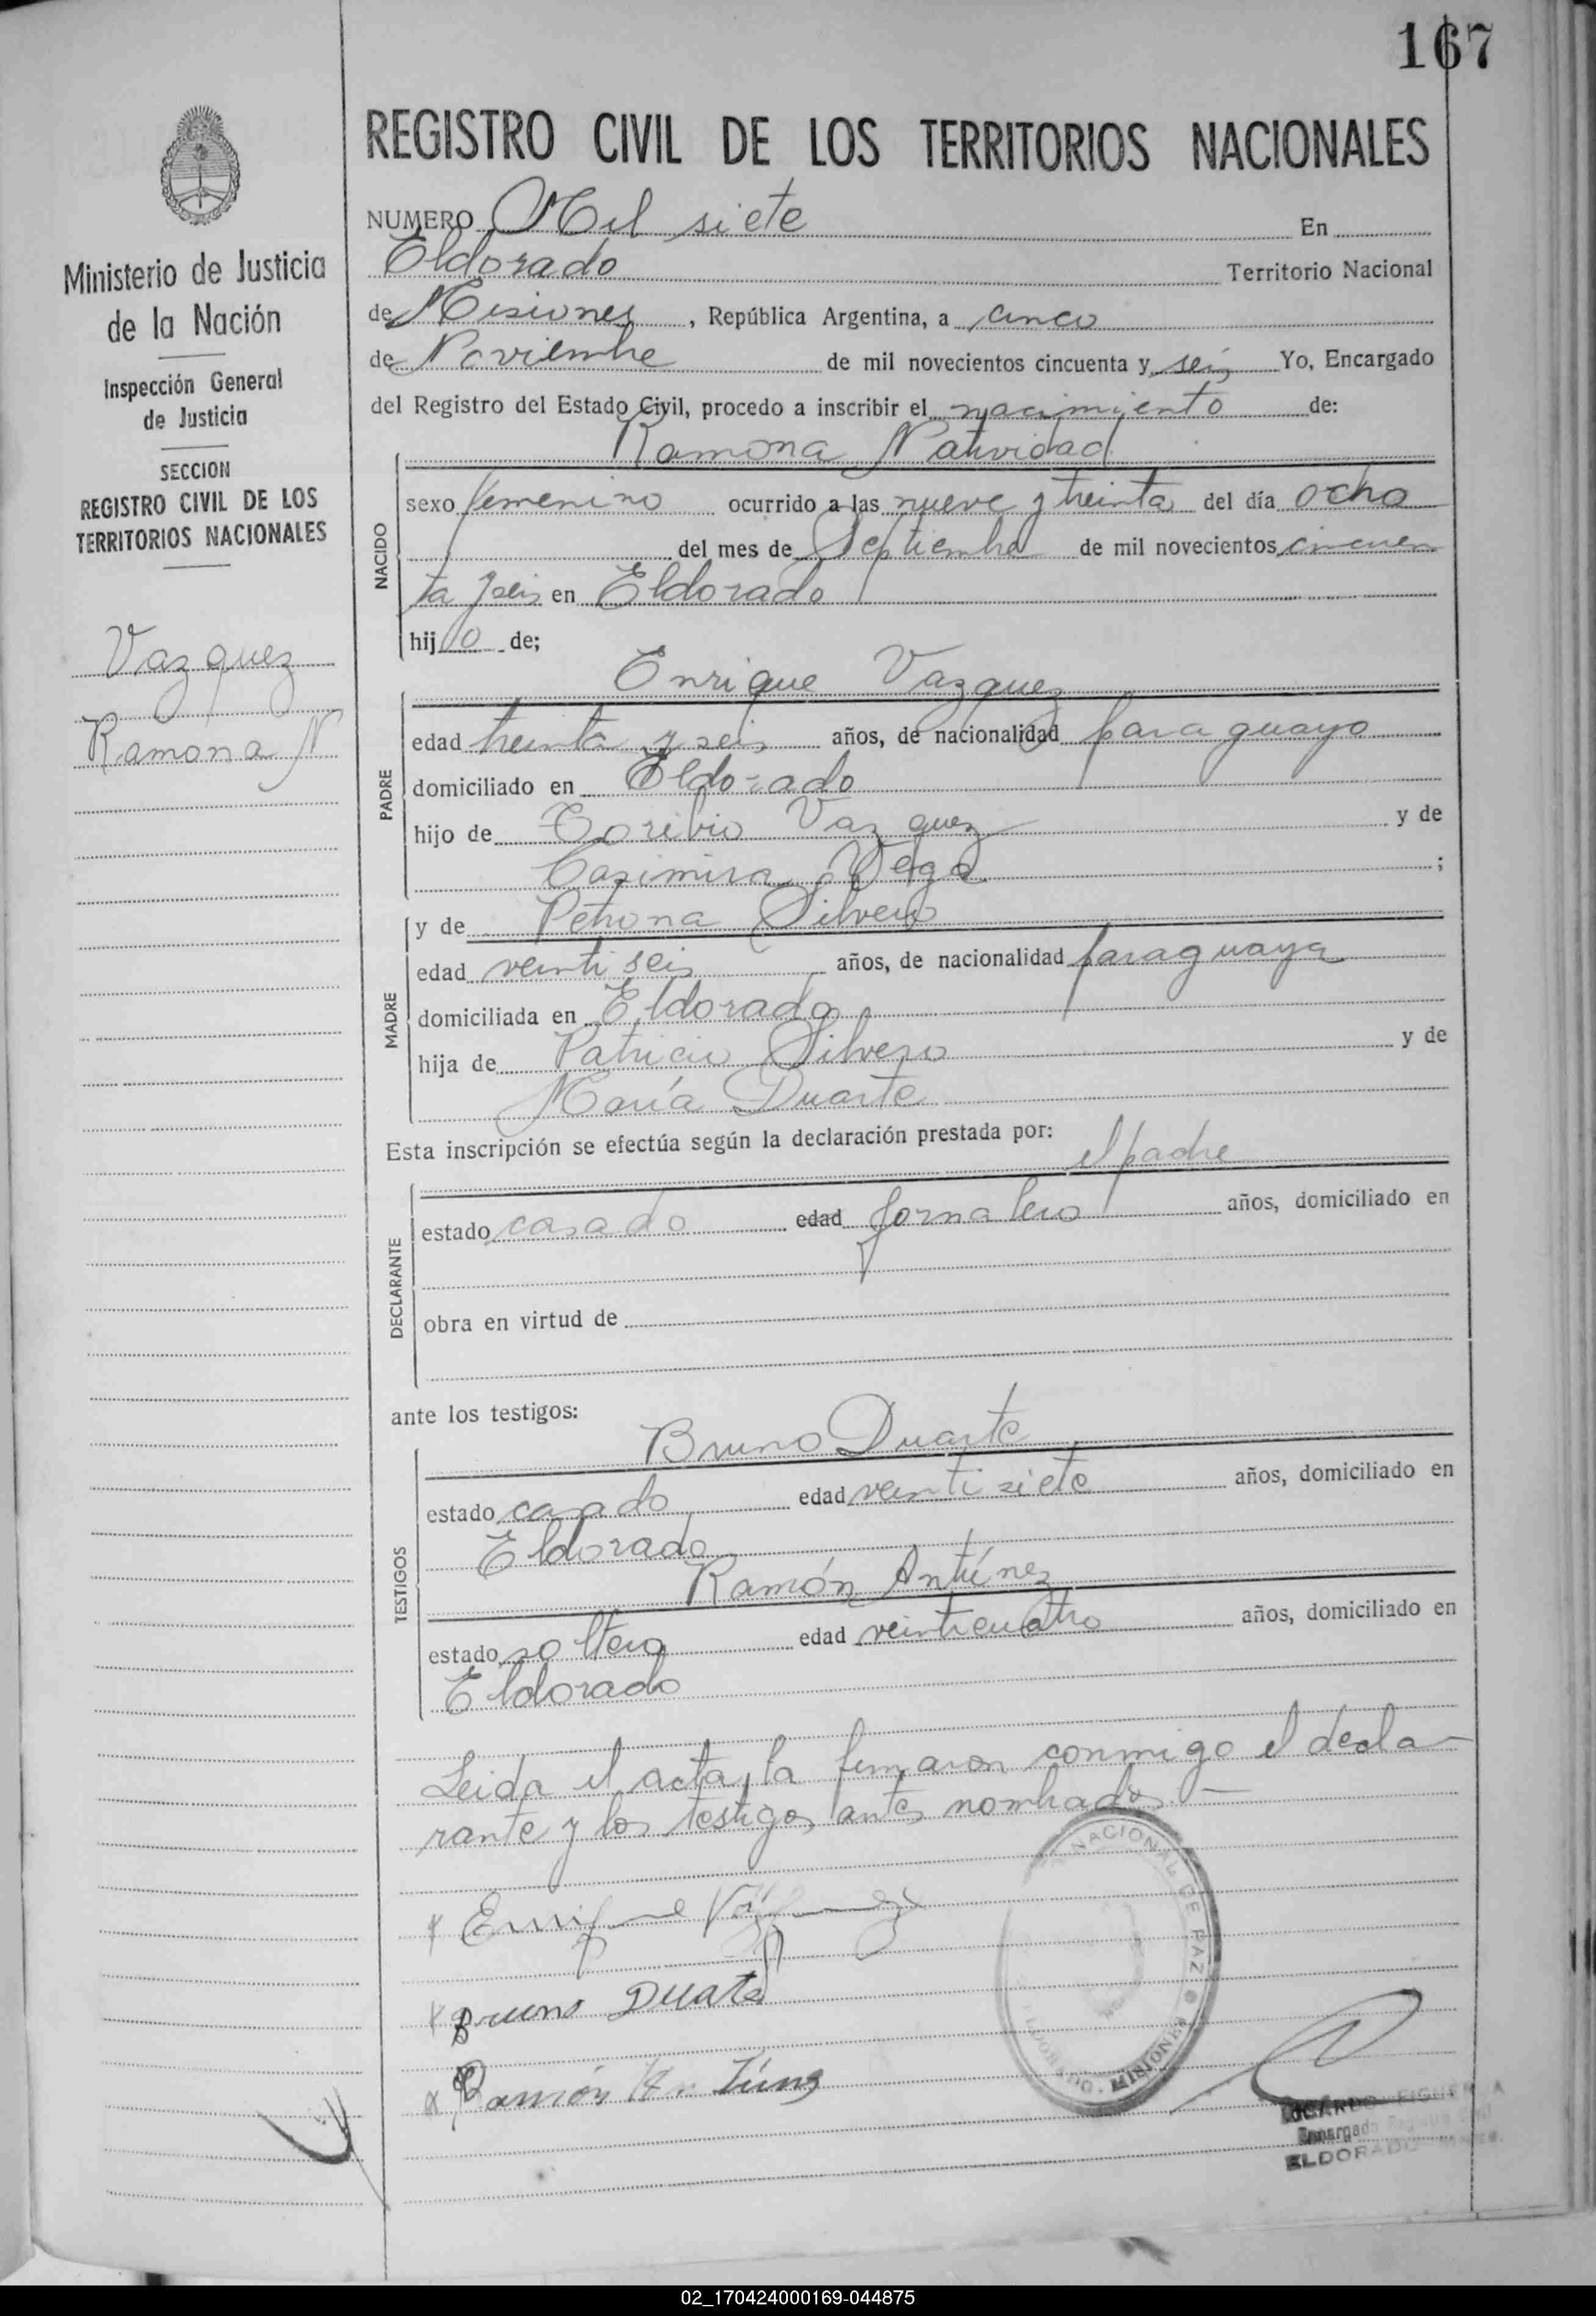 167
REGISTRO CIVIL DE LOS TERRITORIOS NACIONALES
Ministerio de Justicia
de la Nación
Inspección General
de Justicia
SECCION
REGISTRO CIVIL DE LOS
TERRITORIOS NACIONALES
Vazquez
Ramona N
NUMERO Mil siete En
Eldorado Territorio Nacional
de Misiones, República Argentina, a cinco
de Noviembre de mil novecientos cincuenta y seis Yo, Encargado
del Registro del Estado Civil, procedo a inscribir el nacimiento de:
Ramona Natividad
NACIDO
sexo femenino ocurrido a las nueve y treinta del día ocho
del mes de Septiembre de mil novecientos cincuen
ta y seis en Eldorado
hijo de;
Enrique Vazquez
PADRE
edad treinta y seis años, de nacionalidad paraguayo
domiciliado en Eldorado
hijo de Toribio Vazquez y de
Casimira Vega;
MADRE
y de Petrona Silvero
edad veintiseis años, de nacionalidad paraguaya
domiciliada en Eldorado
hija de Patricio Silvero y de
María Duarte
Esta inscripción se efectúa según la declaración prestada por:
el padre
DECLARANTE
estado casado edad jornalero años, domiciliado en
obra en virtud de
ante los testigos:
Bruno Duarte
TESTIGOS
estado casado edad veintisiete años, domiciliado en
Eldorado
Ramón Antúnez
estado soltero edad veinticuatro años, domiciliado en
Eldorado
Leida el acta, la firmaron conmigo el decla-
rante y los testigos antes nombrados
x Enrique Vázquez
x Bruno Duarte
x Ramón
NACIONAL DE PAZ
ELDORADO - MISIONES
Encargado
ELDORADO
02_170424000169-044875